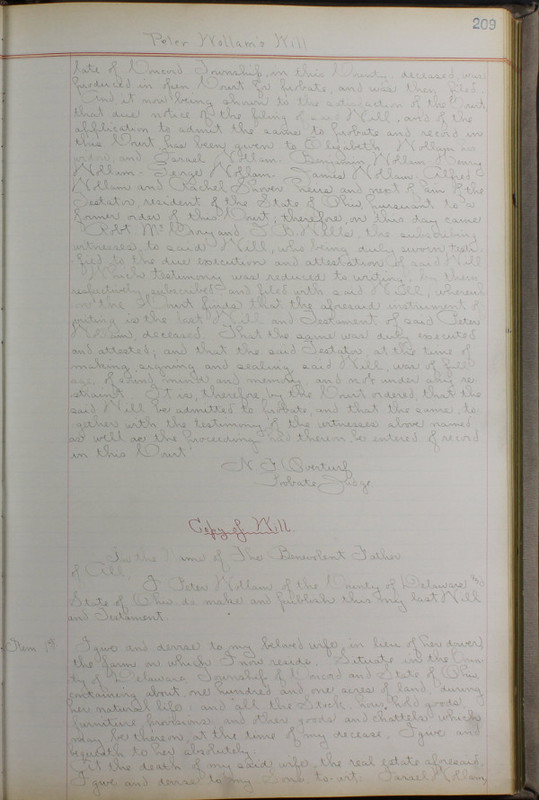 209
Peter Wollam's Will
late of Concord Township in this County, deceased, was
produced in open Court for probate, and was then filed.
And it now being shown to the satisfaction of the Court
that due notice of the filing of said Will, and of the
application to admit the same to probate and record in
this Court has been given to Elizabeth Wollam
and Israel Wollam, Benjamin Wollam, Henry
Wollam, George Wollam, James Wollam, Alfred
Wollam and Rachel Shover heirs and next of kin of the
Testator, resident of the State of Ohio, pursuant to a
former order of this Court; therefore, on this day came
Robt. and Wells, the subscribing
witnesses, to said Will, who being duly sworn testi-
fied to the due execution and attestation of said Will
Which testimony was reduced to writing, by them
respectively subscribed and filed with said Will, whereup-
on the Court finds that the aforesaid instrument of
writing is the last Will and Testament of said Peter
Wollam, deceased. That the same was duly executed
and attested, and that the said Testator, at the time of
making, signing and sealing said Will, was of full
age, of sound mind and memory and not under any re-
straint. It is, therefore, by the Court ordered, that the
said Will be admitted to probate, and that the same, to-
gether with the testimony of the witnesses above named
as well as the proceedings had therein be entered of record
in this Court.
Overturf
Probate Judge
Copy of Will.
In the Name of The Benevolent Father
of All
I Peter Wollam of the County of Delaware &
State of Ohio do make and publish this my last Will
and Testament.
Item 1st I give and devise to my beloved wife, in lieu of her dower,
the farm on which I now reside. Situate in the Coun-
ty of Delaware Township of Concord and State of Ohio
containing about one hundred and one acres of land, during
her natural life; and all the Stock, household goods,
furniture, provisions, and other goods and chattels which
may be thereon, at the time of my decease, I give and
bequeath to her absolutely.
At the death of my said wife, the real estate aforesaid,
I give and devise to my Sons, to-wit: Israel Wollam,